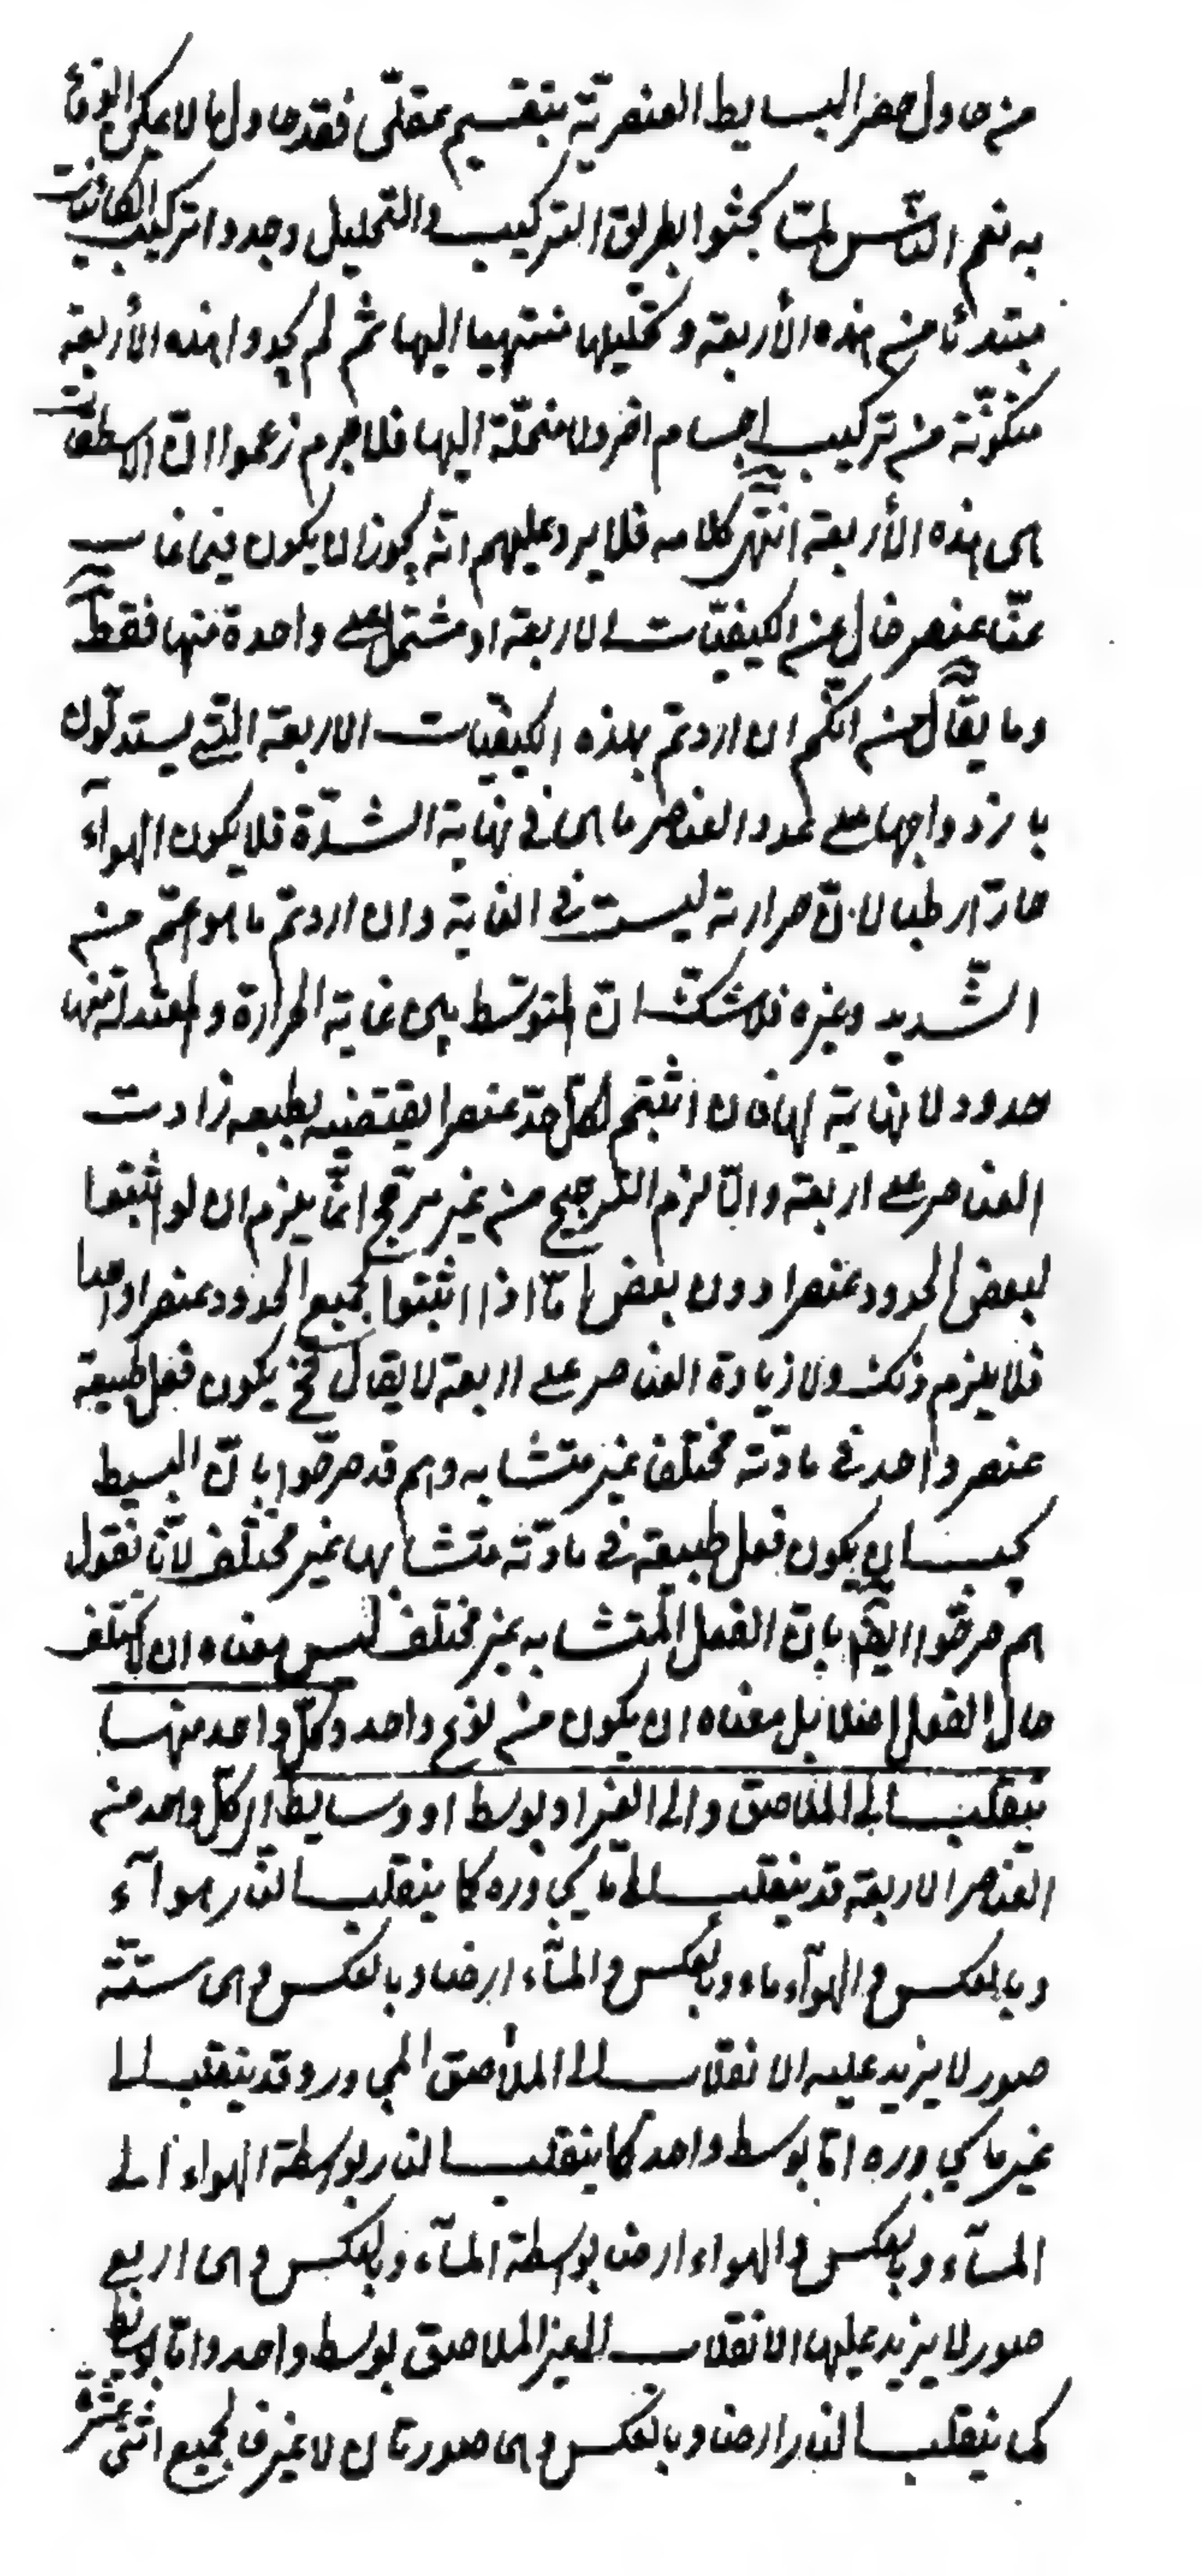 من حاول حصر البسايط العنصريّة بتقسيم عقلّى فقد حاول ما لا يمكن الوفاء
به نعم النّاس لمّا بحثوا بطريق التركيب والتحليل وجدوا تركيب الكائنات
مبتدئا من هذه الأربعة وتحليلها منتهيا اليها ثم لم يجدوا هذه الأربعة
متكوّنة من تركيب اجسام اخر ولا منحلّة اليها فلا جرم زعموا انّ الاسطقسات
هى هذه الأربعة انتهى كلامه فلا يرد عليهم انّه يجوز ان يكون فيما غاب
عنّا عنصر خال عن الكيفيّات الاربعة او مشتمل على واحدة منها فقط
وما يقال من انّكم ان اردتم بهذه الكيفيّات الاربعة الّتى يستدلّون
بازدواجها على عدد العناصر ما هى فى نهاية الشدّة فلا يكون الهوآء
حارّا رطبا لانّ حرارته ليست فى الغاية وان اردتم ما هو اعمّ من
الشّديد وغيره فلا شكّ انّ المتوسّط بين غاية الحرارة والمعتدلة منها
حدود لا نهاية لها فان اثبتم لكلّ حدّ عنصرا يقتضيه بطبعه زادت
العناصر على اربعة والّا لزم التّرجيح من غير مرجّح انّما يلزم ان لو اثبتوا
لبعض الحدود عنصرا دون بعض امّا اذا اثبتوا لجميع الحدود عنصرا واحدا
فلا يلزم ذلك ولا زيادة العناصر على اربعة لا يقال فح يكون فعل طبيعة
عنصر واحد فى مادّته مختلفا غير متشابه وهم قد صرّحوا بانّ البسيط
يجب ان يكون فعل طبيعته فى مادّته متشابها غير مختلف لأنّا نقول
هم صرّحوا ايضا بانّ الفعل المتشابه غير مختلف ليس معناه ان لا يختلف
حال الفعل اصلا بل معناه ان يكون من نوع واحد وكلّ واحد منها
ينقلب الى الملاصق والى الغير او بوسط او وسايط اى كلّ واحد من
العناصر الاربعة قد ينقلب الى ما يجاوره كما ينقلب النّار هوآء
وبالعكس والهوآء ماء وبالعكس والمآء ارضا وبالعكس وهى ستّة
صور لا يزيد عليه الانقلاب الى الملاصق المجاور وقد ينقلب الى
غير ما يجاوره امّا بوسط واحد كما ينقلب النار بواسطة الهواء الى
المآء وبالعكس والهواء ارضا بواسطة المآء وبالعكس وهى اربع
صور لا يزيد عليها الانقلاب الى الغير الملاصق بوسط واحد وامّا بوسايط
كما ينقلب النار ارضا وبالعكس وهى صورتان لا غير فالجميع اثنى عشرة